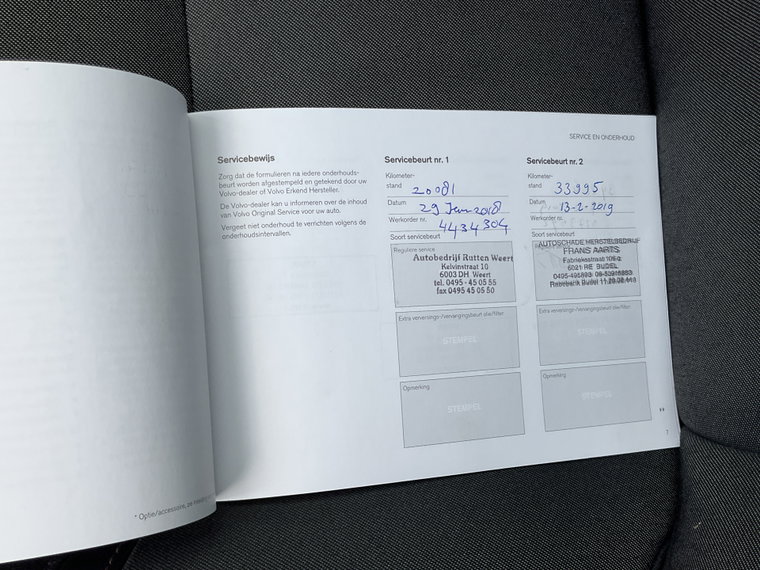 SERVICE EN ONDERHOUD
Servicebewijs
Zorg dat de formulieren na iedere onderhouds-
beurt worden afgestempeld en getekend door uw
Volvo-dealer of Volvo Erkend Hersteller.
De Volvo-dealer kan u informeren over de inhoud
van Volvo Original Service voor uw auto.
Vergeet niet onderhoud te verrichten volgens de
onderhoudsintervallen.
Servicebeurt nr. 1
Kilometer-
stand 20081
Datum 29 Jan 2018
Werkorder nr. 4434304
Soort servicebeurt
Reguliere service
Autobedrijf Rutten Weert
Kelvinstraat 10
6003 DH Weert
tel. 0495 - 45 05 55
fax 0495 45 05 50
Extra verversings-/vervangingsbeurt olie/filter
STEMPEL
Opmerking
STEMPEL
Servicebeurt nr. 2
Kilometer-
stand 33995
Datum 13-2-2019
Werkorder nr.
Soort servicebeurt
AUTOSCHADE HERSTELBEDRIJF
FRANS AARTS
Fabrieksstraat
6021 RE BUDEL
Rabobank Budel
Extra verversings-/vervangingsbeurt olie/filter
STEMPEL
Opmerking
STEMPEL
7
* Optie/accessoire, zie